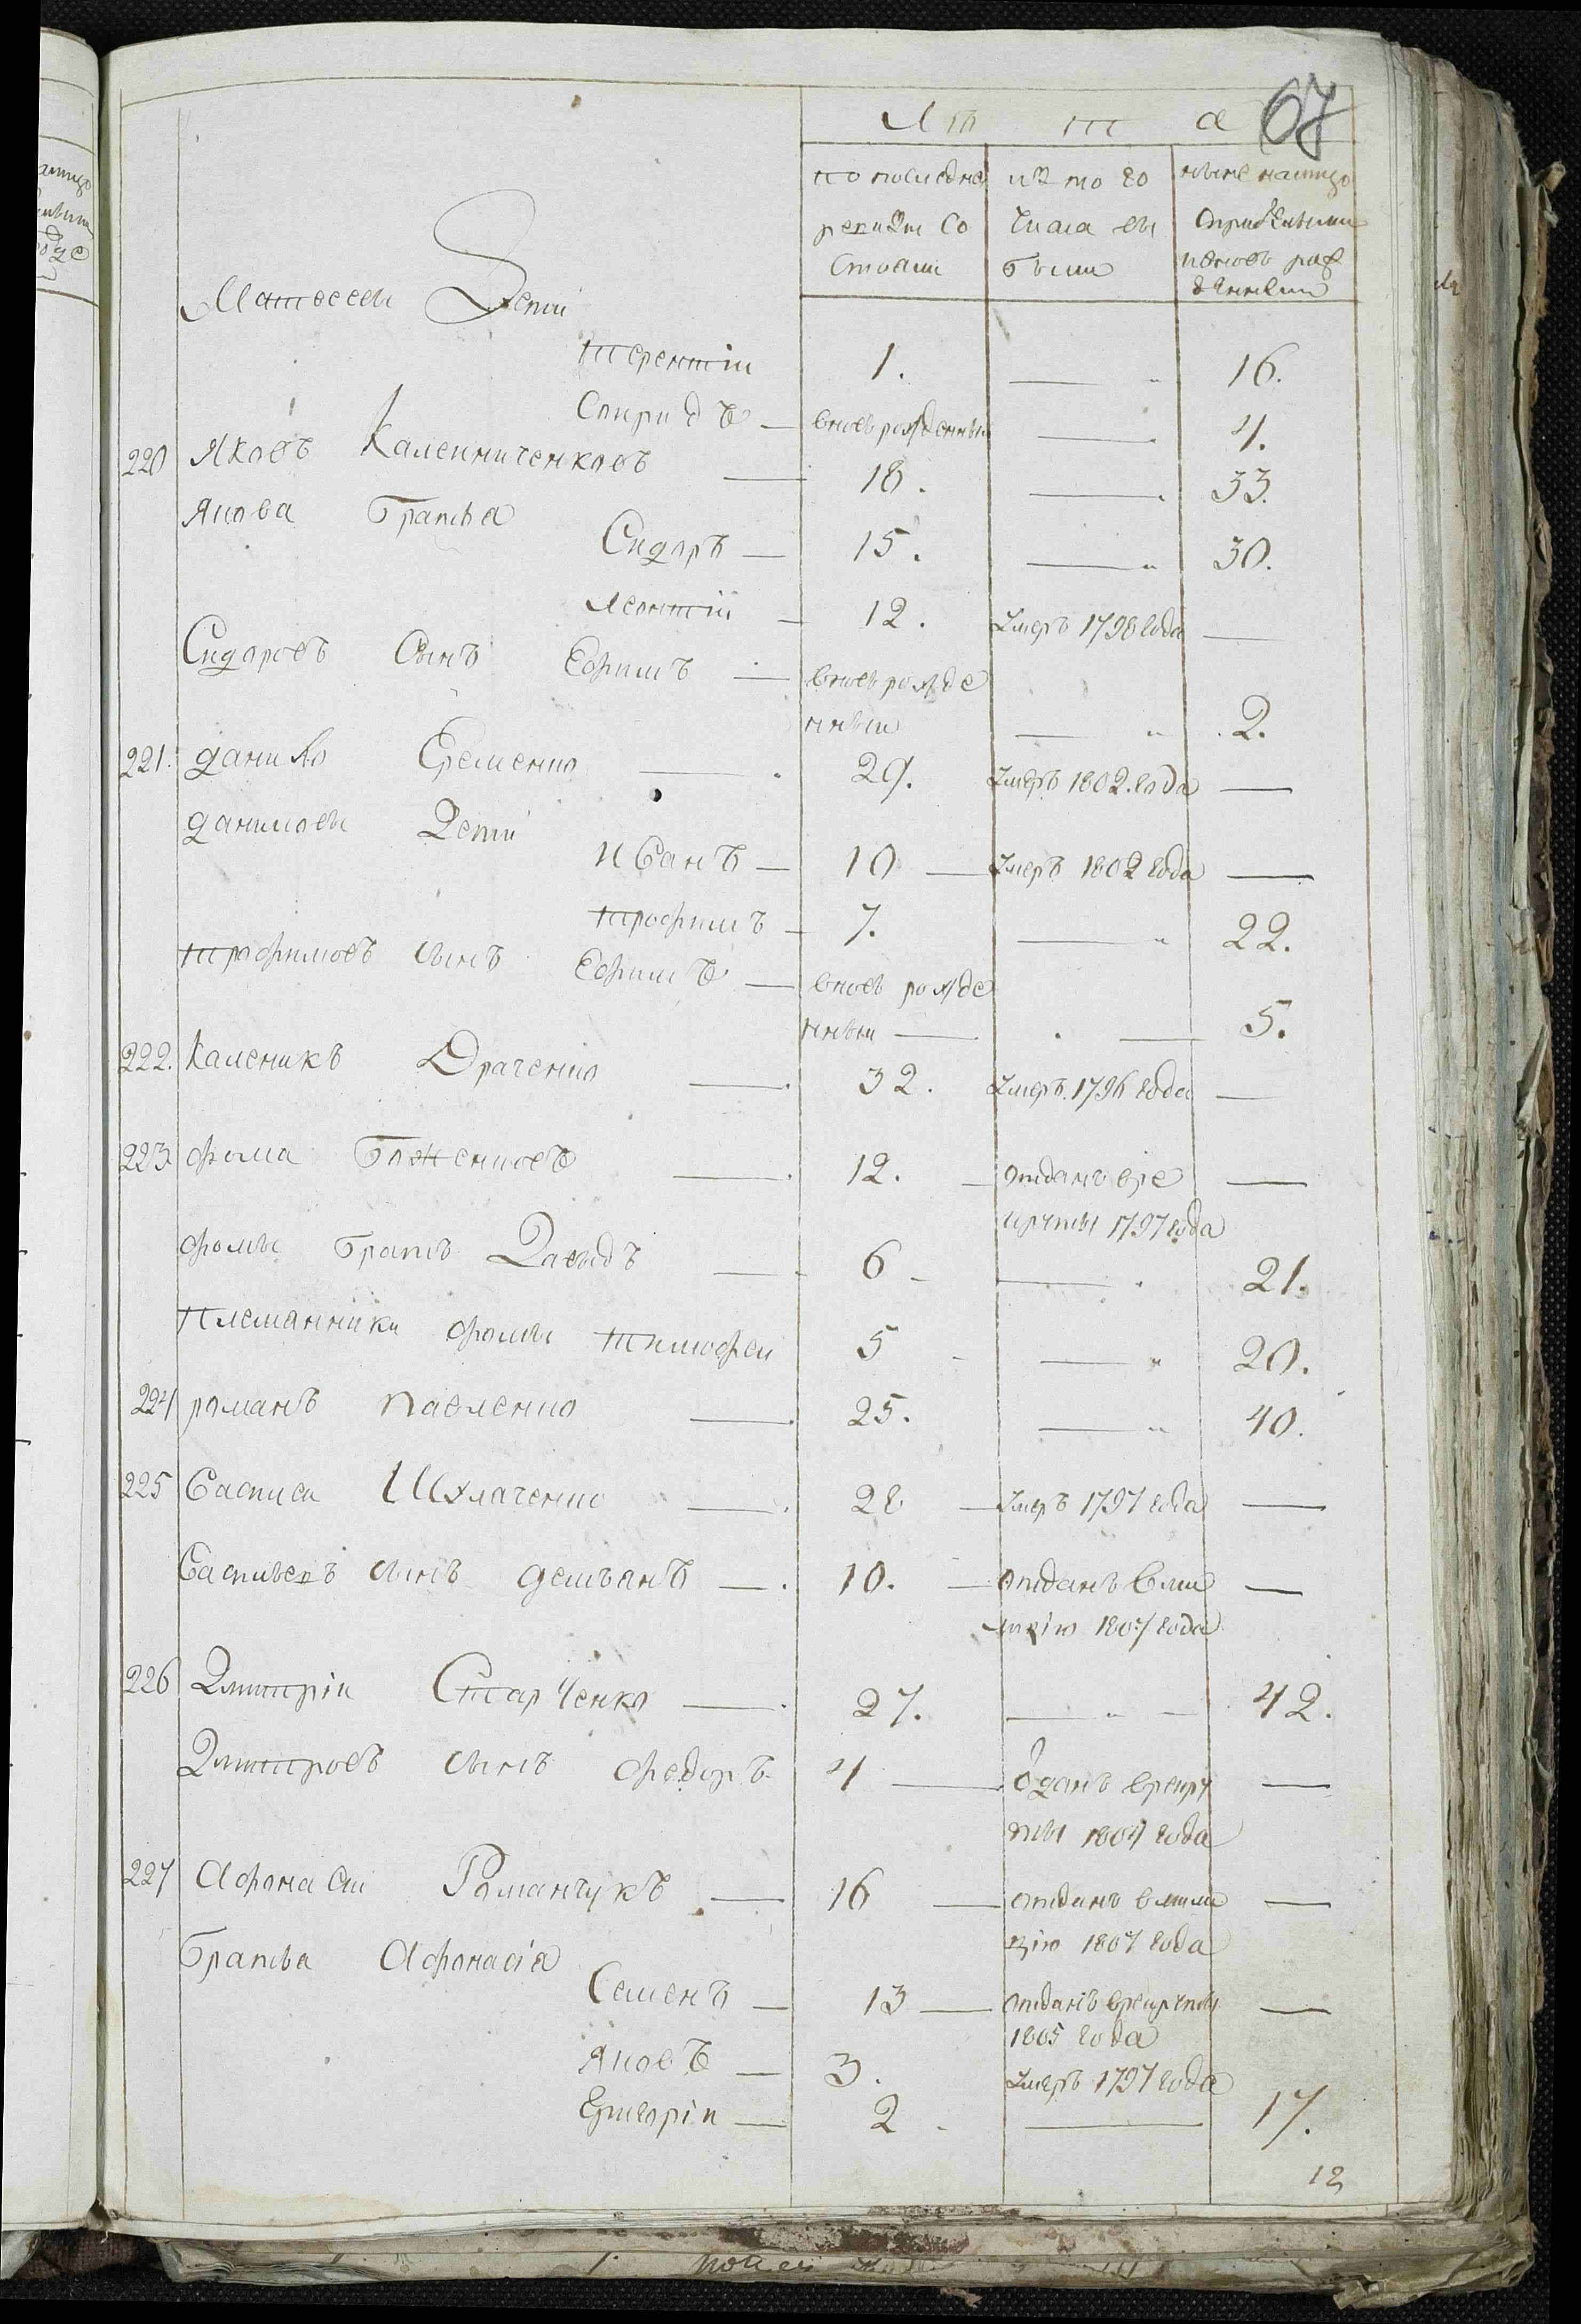 Лѣта 67
по последне из того ныне налицо
ревизи со числа вы сприбылыми
стояли были и вновь рож
денными
Матвеевы Дети
Терентiй 1. — 16.
Спиридъ — вновь рожденный — 4.
220 Яковъ Калениченковъ — 18. — 33.
Якова братья
Сидоръ — 15. — 30.
Леонтiй — 12. умеръ 1798 года —
Сидоровъ сынъ Ефимъ — вновь рожде
нный — 2.
221. Данило Еременко — 29. умеръ 1802. года —
Даниловы Дети
Иванъ — 10 — умеръ 1802 года —
Трофимъ — 7. — 22.
Трофимовъ сынъ Ефимъ — вновь рожде
нный — 5.
222. Каленикъ Драченко — 32. умеръ 1796 года —
223 Фома Боженковъ — 12. — отданъ вре
круты 1797 года
Фомы братъ Давыдъ — 6 — 21.
Племянники Фомы Тимофей 5 — 20.
224 Романъ Павленко — 25. — 40.
225 Василей Шкляченко — 28 — умеръ 1797 года —
Васильевъ сынъ Демъянъ — 10. — отданъ вми
лицiю 1807 года
226 Дмитрiй Старченко — 27. — 42.
Дмитровъ сынъ Федоръ 4 — одданъ врекру
ты 1804 года
227 Афонасий Романчукъ — 16 — отданъ вмили
цiю 1807 года
братья Афонасiя
Семенъ — 13 — отданъ врекруты
1805 года
Яковъ — 3. умеръ 1797 года
Григорiй — 2 — 17.